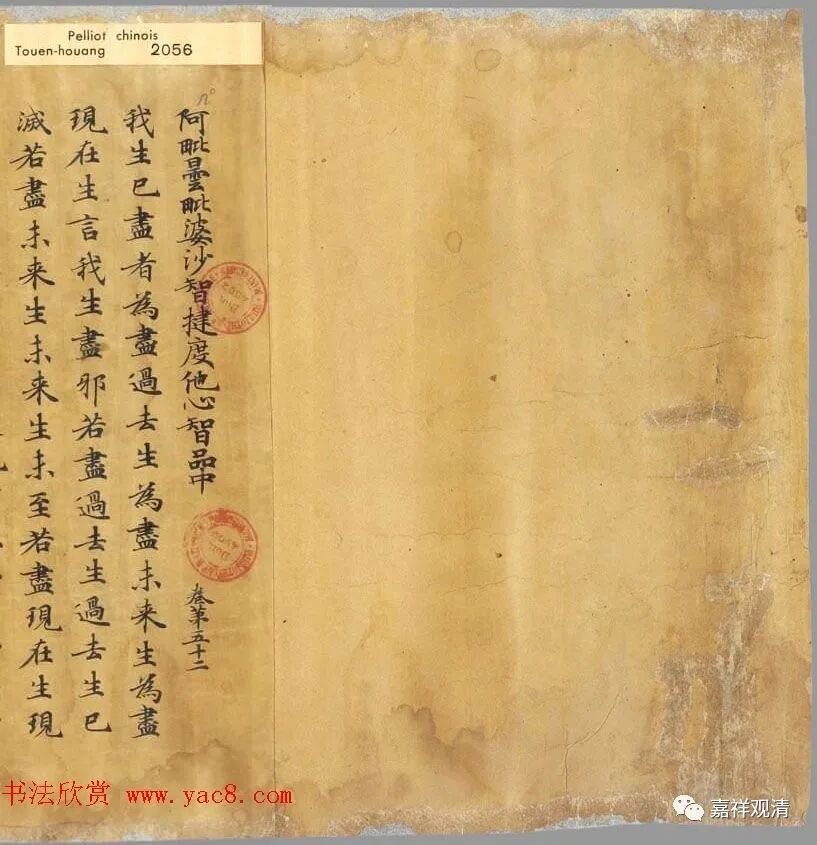 Pelliot chinois
Touen-houang 2056
阿毗曇毗婆沙智揵度他心智品中 卷第五十二
我生已盡者為盡過去生為盡未来生為盡
現在生言我生盡邪若盡過去生過去生已
滅若盡未来生未来生未至若盡現在生現
书法欣赏 www.yac8.com
嘉祥观清